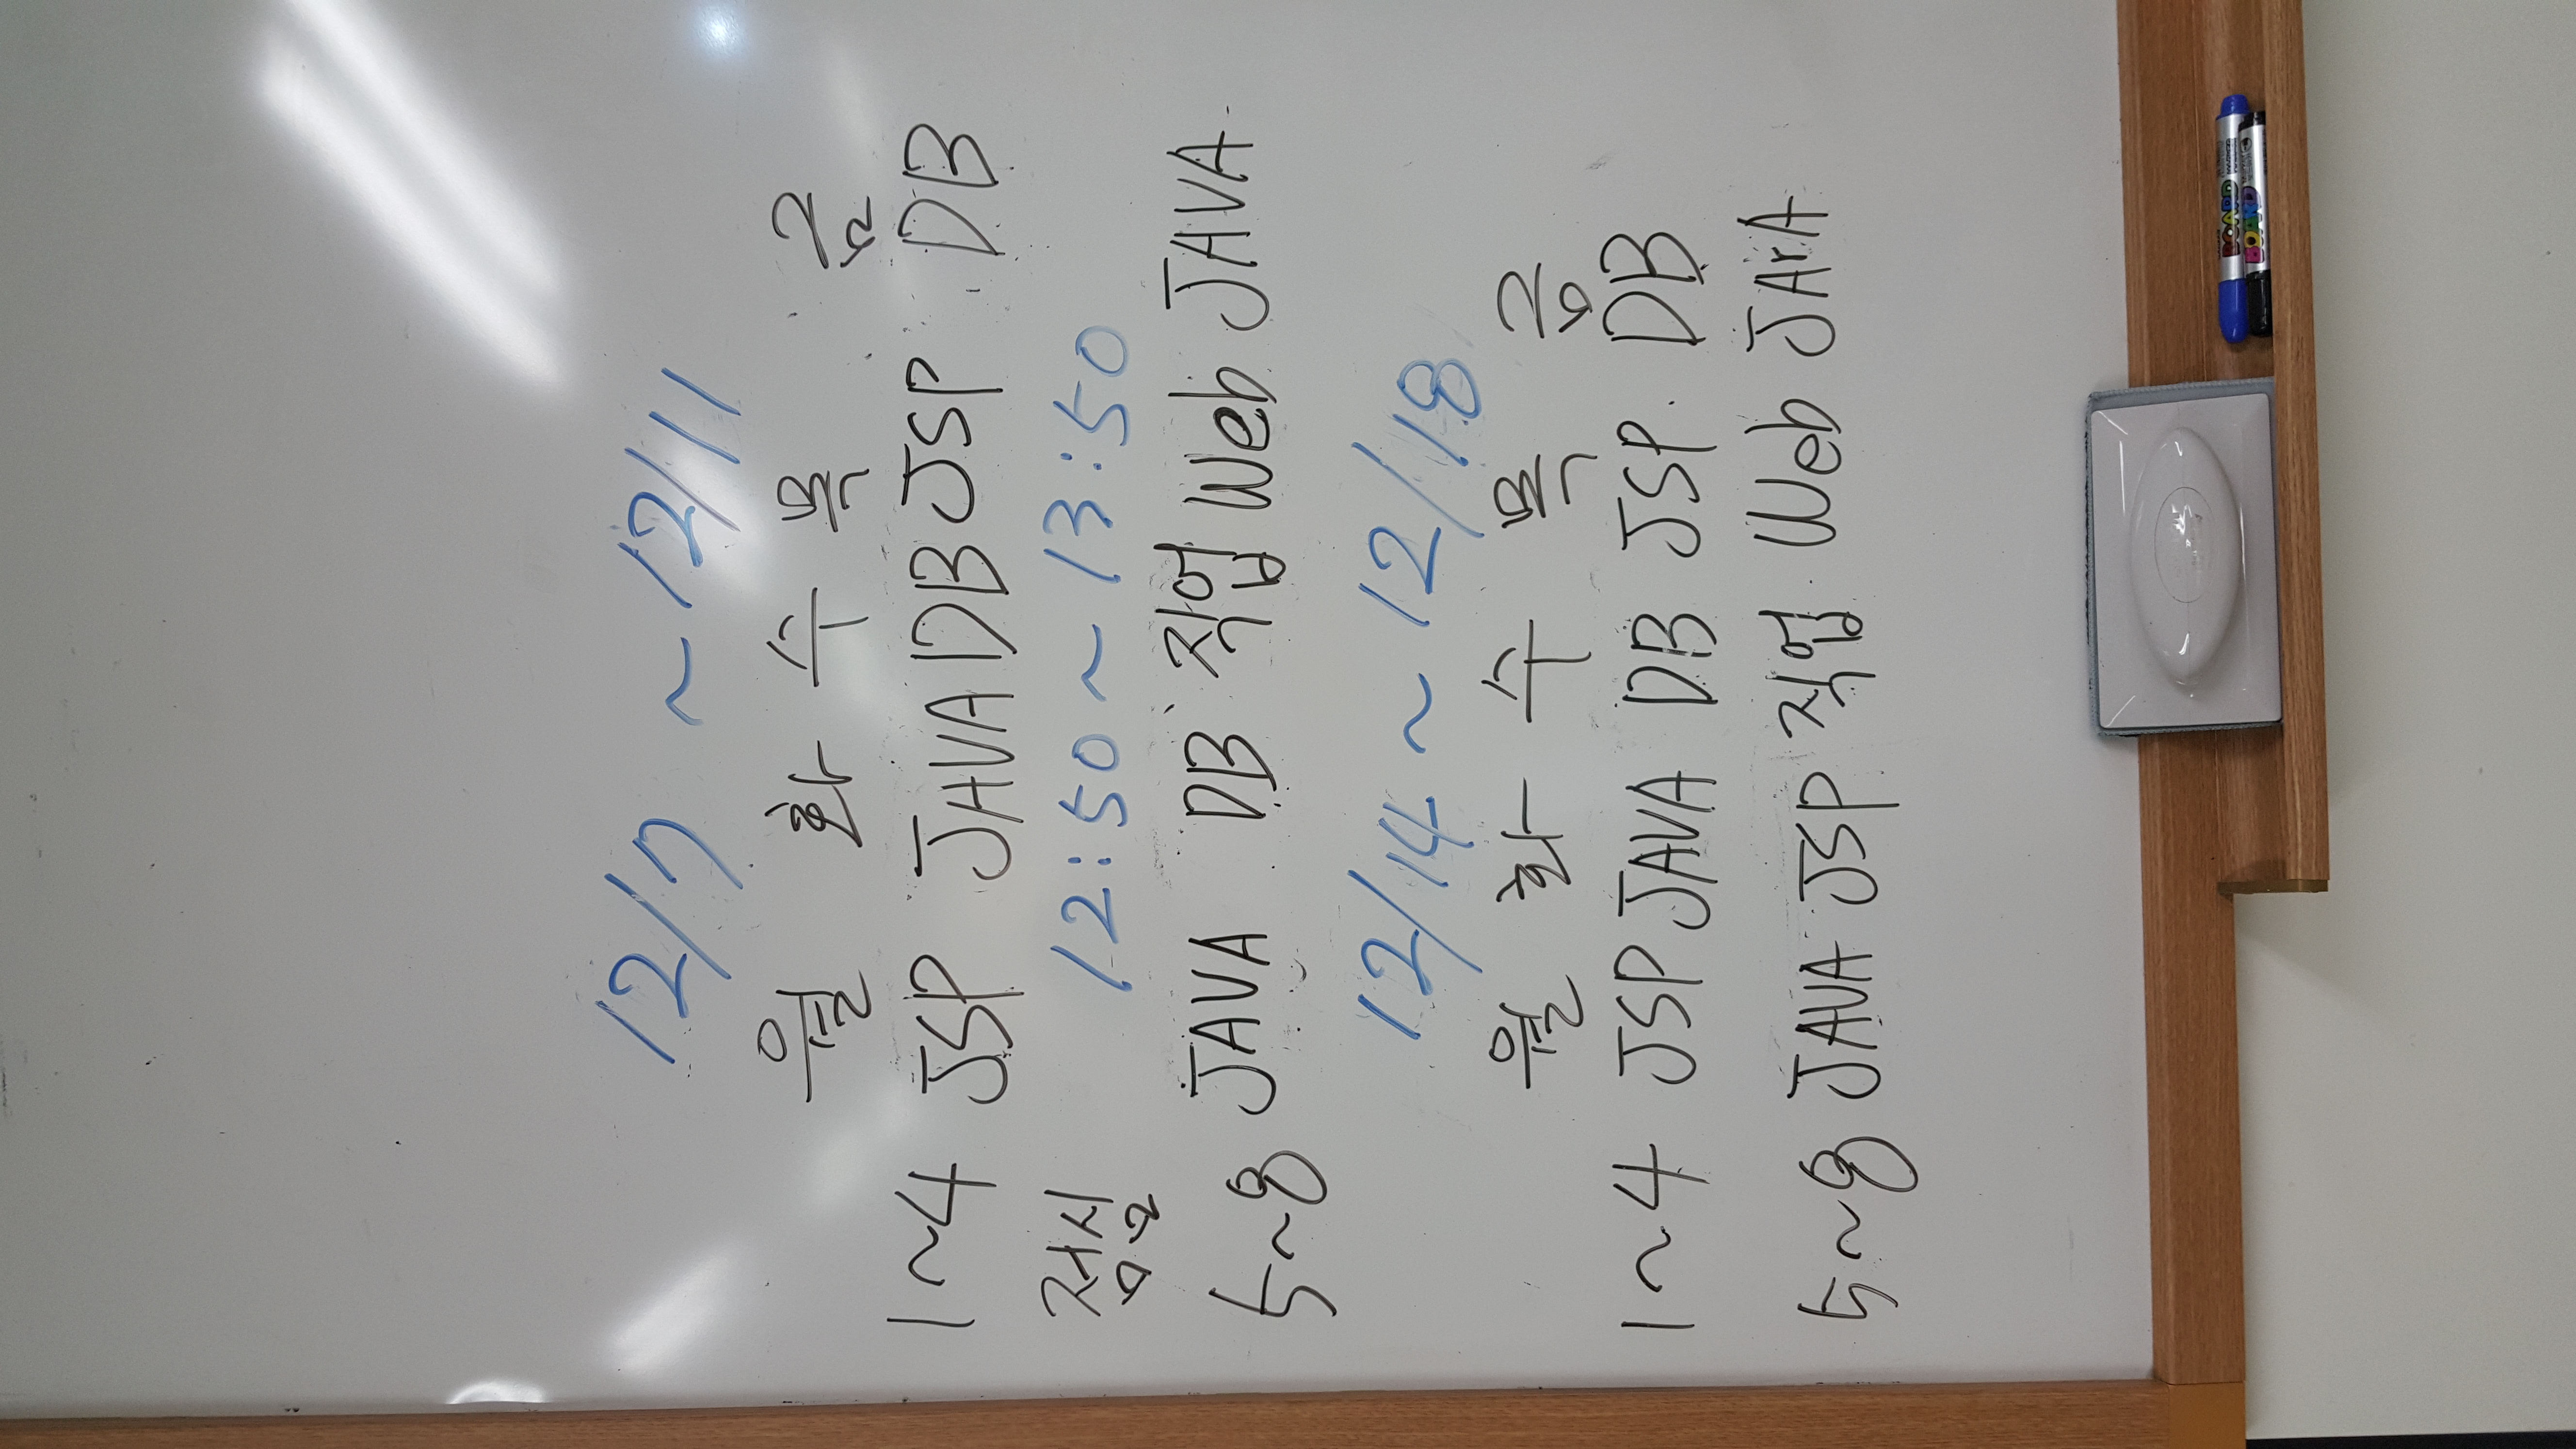 12/7 ~ 12/11
월 화 수 목 금
1~4 JSP JAVA DB JSP DB
점심 12:50 ~ 13:50
5~8 JAVA DB 직업 Web JAVA
12/14 ~ 12/18
월 화 수 목 금
1~4 JSP JAVA DB JSP. DB
5~8 JAVA JSP 직업 Web JAVA
BOARD MARKER
BOARD